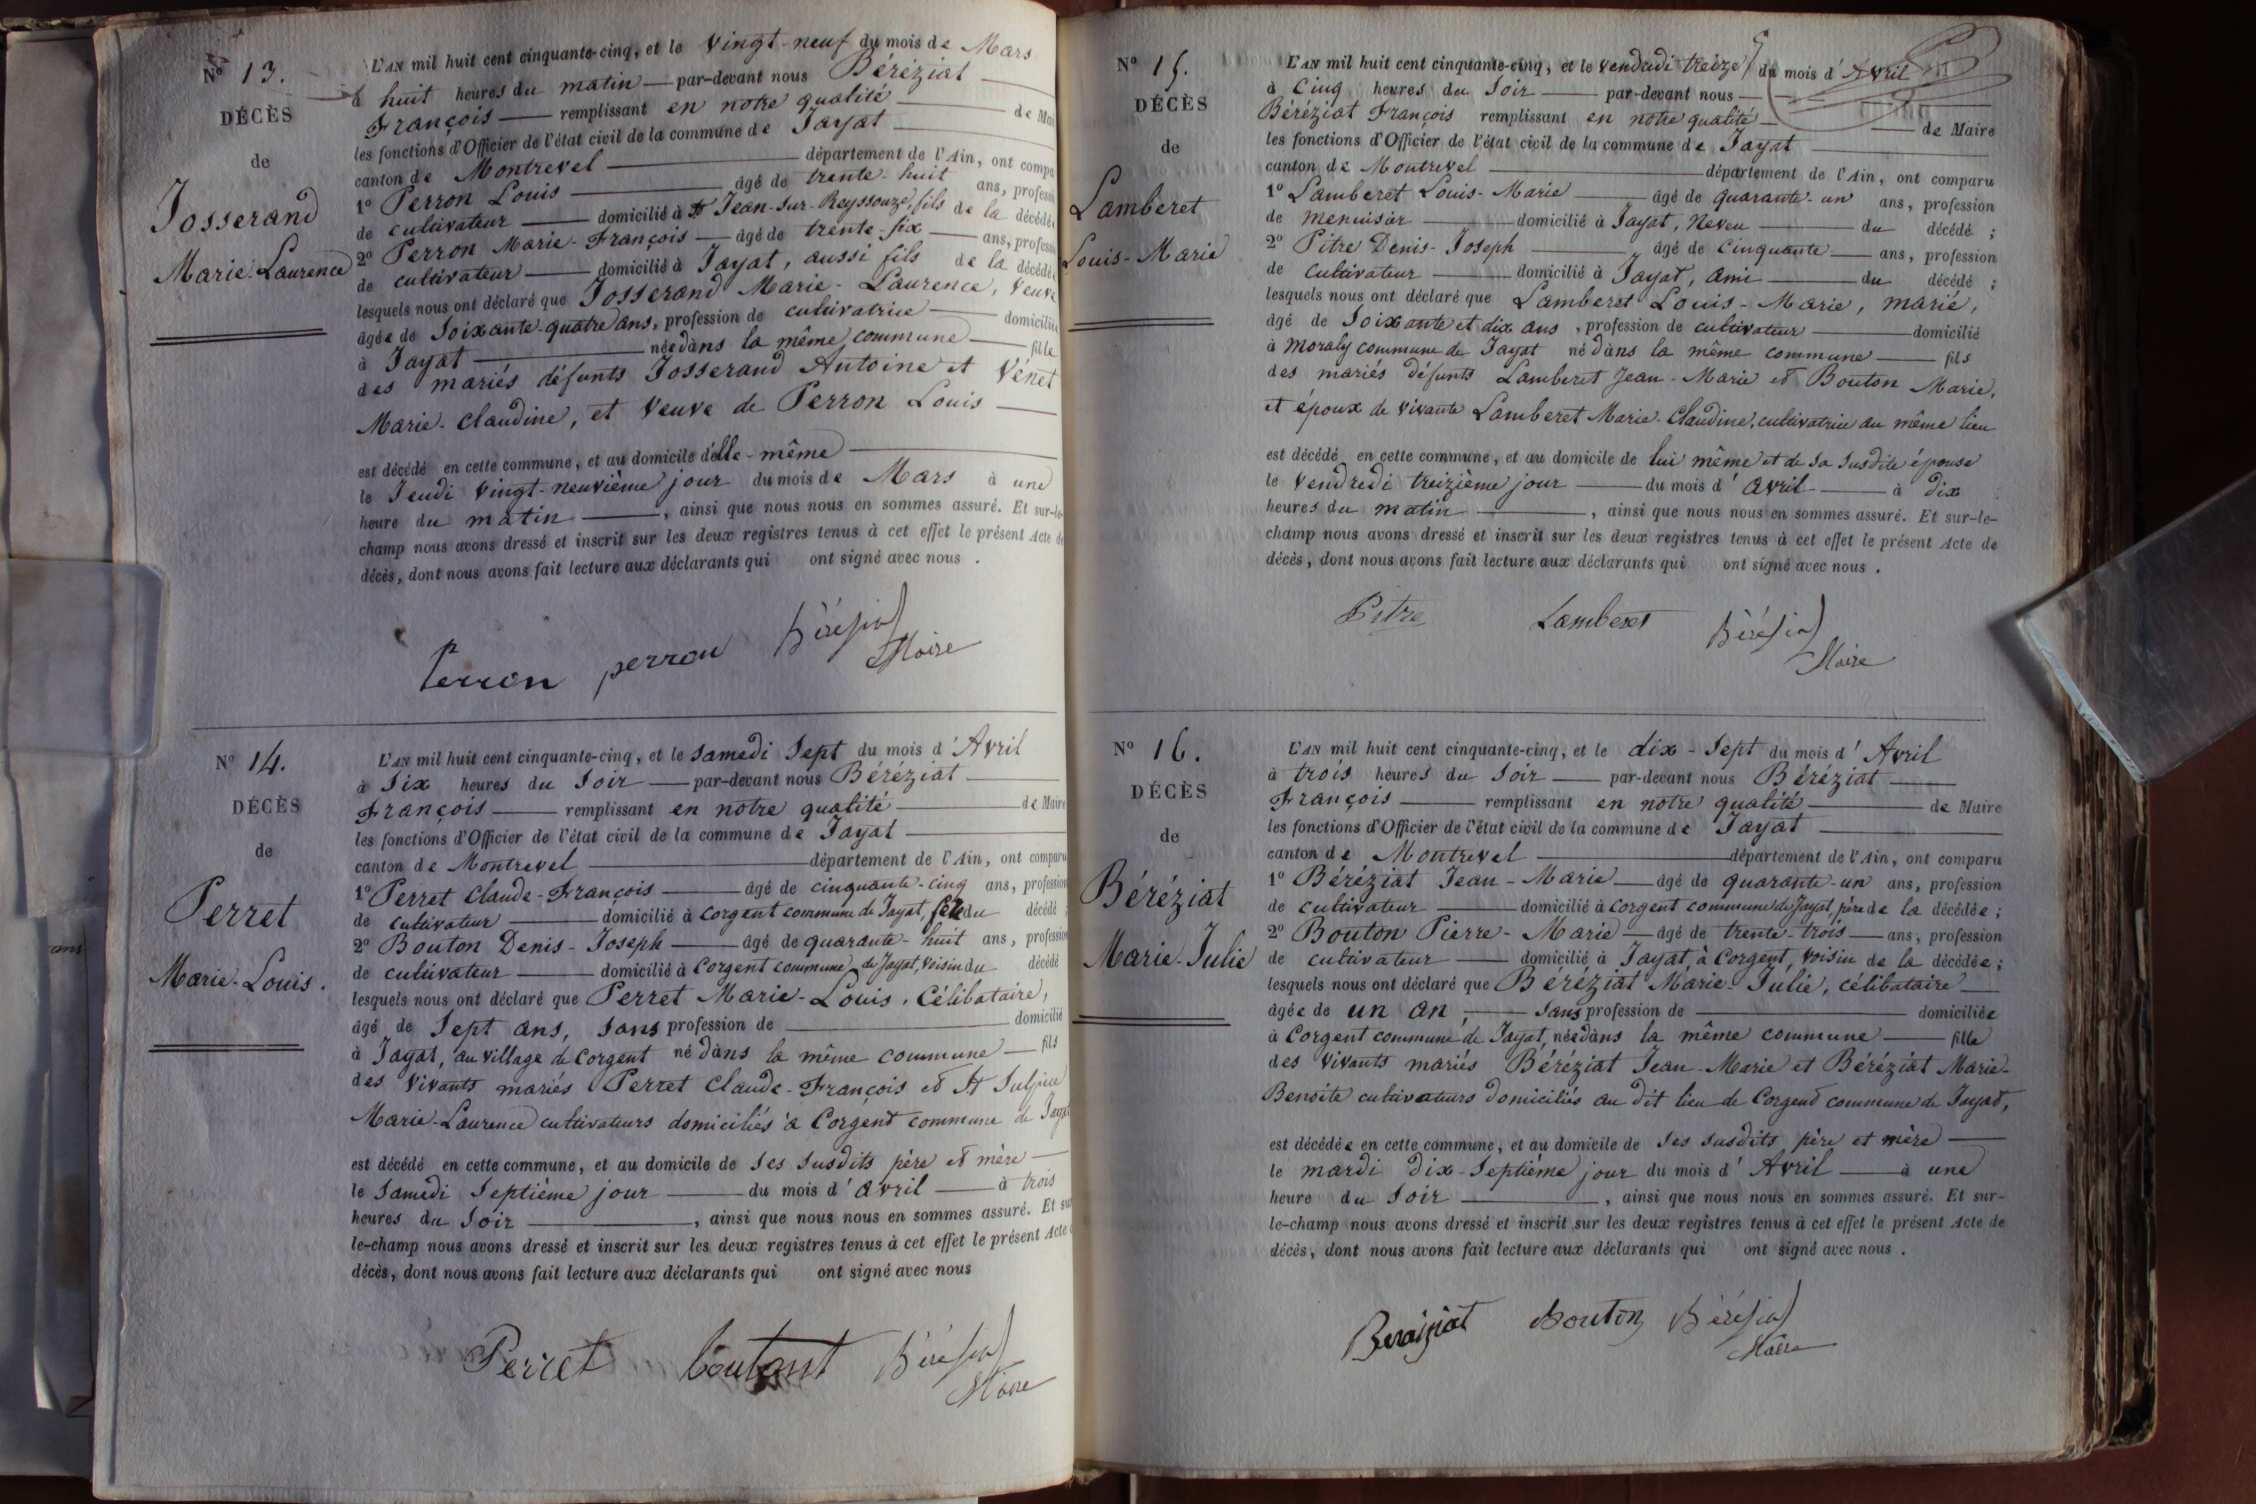 N° 13.
DÉCÈS
de
Josserand
Marie-Laurence
L'AN mil huit cent cinquante-cinq, et le vingt-neuf du mois de Mars
à huit heures du matin par-devant nous Béréziat
François remplissant en notre qualité de Mai
les fonctions d'Officier de l'état civil de la commune de Jayat
canton de Montrevel département de l'Ain, ont compa
1° Perron Louis âgé de trente-huit ans, profess
de cultivateur domicilié à St Jean-sur-Reyssouze, fils de la décédée
2° Perron Marie-François âgé de trente-six ans, profess
de cultivateur domicilié à Jayat, aussi fils de la décédée
lesquels nous ont déclaré que Josserand Marie-Laurence, veuve
âgée de soixante-quatre ans, profession de cultivatrice domiciliée
à Jayat née dans la même commune fille
des mariés défunts Josserand Antoine et Vénet
Marie-Claudine, et veuve de Perron Louis
est décédé en cette commune, et au domicile d'elle-même
le Jeudi vingt-neuvième jour du mois de Mars à une
heure du matin, ainsi que nous nous en sommes assuré. Et sur-le-
champ nous avons dressé et inscrit sur les deux registres tenus à cet effet le présent Acte de
décès, dont nous avons fait lecture aux déclarants qui ont signé avec nous.
Perron perron Béréziat
Maire
N° 14.
DÉCÈS
de
Perret
Marie-Louis.
L'AN mil huit cent cinquante-cinq, et le samedi sept du mois d'Avril
à six heures du soir par-devant nous Béréziat
François remplissant en notre qualité de Maire
les fonctions d'Officier de l'état civil de la commune de Jayat
canton de Montrevel département de l'Ain, ont comparu
1° Perret Claude-François âgé de cinquante-cinq ans, profession
de cultivateur domicilié à Corgent commune de Jayat, père du décédé ;
2° Bouton Denis-Joseph âgé de quarante-huit ans, profession
de cultivateur domicilié à Corgent commune de Jayat, voisin du décédé
lesquels nous ont déclaré que Perret Marie-Louis, célibataire,
âgé de sept ans, sans profession de domicilié
à Jayat, au village de Corgent né dans la même commune fils
des vivants mariés Perret Claude-François et St Sulpice
Marie-Laurence cultivateurs domiciliés à Corgent commune de Jayat
est décédé en cette commune, et au domicile de ses susdits père et mère
le samedi septième jour du mois d'avril à trois
heures du soir, ainsi que nous nous en sommes assuré. Et sur
le-champ nous avons dressé et inscrit sur les deux registres tenus à cet effet le présent Acte
décès, dont nous avons fait lecture aux déclarants qui ont signé avec nous
Perret Béréziat
Maire
N° 15.
DÉCÈS
de
Lamberet
Louis-Marie
L'AN mil huit cent cinquante-cinq, et le vendredi treize du mois d'Avril
à cinq heures du soir par-devant nous
Béréziat François remplissant en notre qualité de Maire
les fonctions d'Officier de l'état civil de la commune de Jayat
canton de Montrevel département de l'Ain, ont comparu
1° Lamberet Louis-Marie âgé de quarante-un ans, profession
de menuisier domicilié à Jayat, neveu du décédé ;
2° Pitre Denis-Joseph âgé de cinquante ans, profession
de cultivateur domicilié à Jayat, ami du décédé ;
lesquels nous ont déclaré que Lamberet Louis-Marie, marié,
âgé de soixante et dix ans, profession de cultivateur domicilié
à Moraly commune de Jayat né dans la même commune fils
des mariés défunts Lamberet Jean-Marie et Bouton Marie,
et époux de vivante Lamberet Marie-Claudine, cultivatrice au même lieu
est décédé en cette commune, et au domicile de lui même et de sa susdite épouse
le vendredi treizième jour du mois d'avril à dix
heures du matin, ainsi que nous nous en sommes assuré. Et sur-le-
champ nous avons dressé et inscrit sur les deux registres tenus à cet effet le présent Acte de
décès, dont nous avons fait lecture aux déclarants qui ont signé avec nous.
Pitre Lamberet Béréziat
Maire
N° 16.
DÉCÈS
de
Béréziat
Marie-Julie
L'AN mil huit cent cinquante-cinq, et le dix-sept du mois d'Avril
à trois heures du soir par-devant nous Béréziat
François remplissant en notre qualité de Maire
les fonctions d'Officier de l'état civil de la commune de Jayat
canton de Montrevel département de l'Ain, ont comparu
1° Béréziat Jean-Marie âgé de quarante-un ans, profession
de cultivateur domicilié à Corgent commune de Jayat, père de la décédée ;
2° Bouton Pierre-Marie âgé de trente-trois ans, profession
de cultivateur domicilié à Jayat, à Corgent, voisin de la décédée ;
lesquels nous ont déclaré que Béréziat Marie-Julie, célibataire
âgée de un an, sans profession de domiciliée
à Corgent commune de Jayat, née dans la même commune fille
des vivants mariés Béréziat Jean-Marie et Béréziat Marie-
Benoite cultivateurs domiciliés au dit lieu de Corgent commune de Jayat,
est décédée en cette commune, et au domicile de ses susdits père et mère
le mardi dix-septième jour du mois d'Avril à une
heure du soir, ainsi que nous nous en sommes assuré. Et sur-
le-champ nous avons dressé et inscrit sur les deux registres tenus à cet effet le présent Acte de
décès, dont nous avons fait lecture aux déclarants qui ont signé avec nous.
Beraiziat Bouton Béréziat
Maire